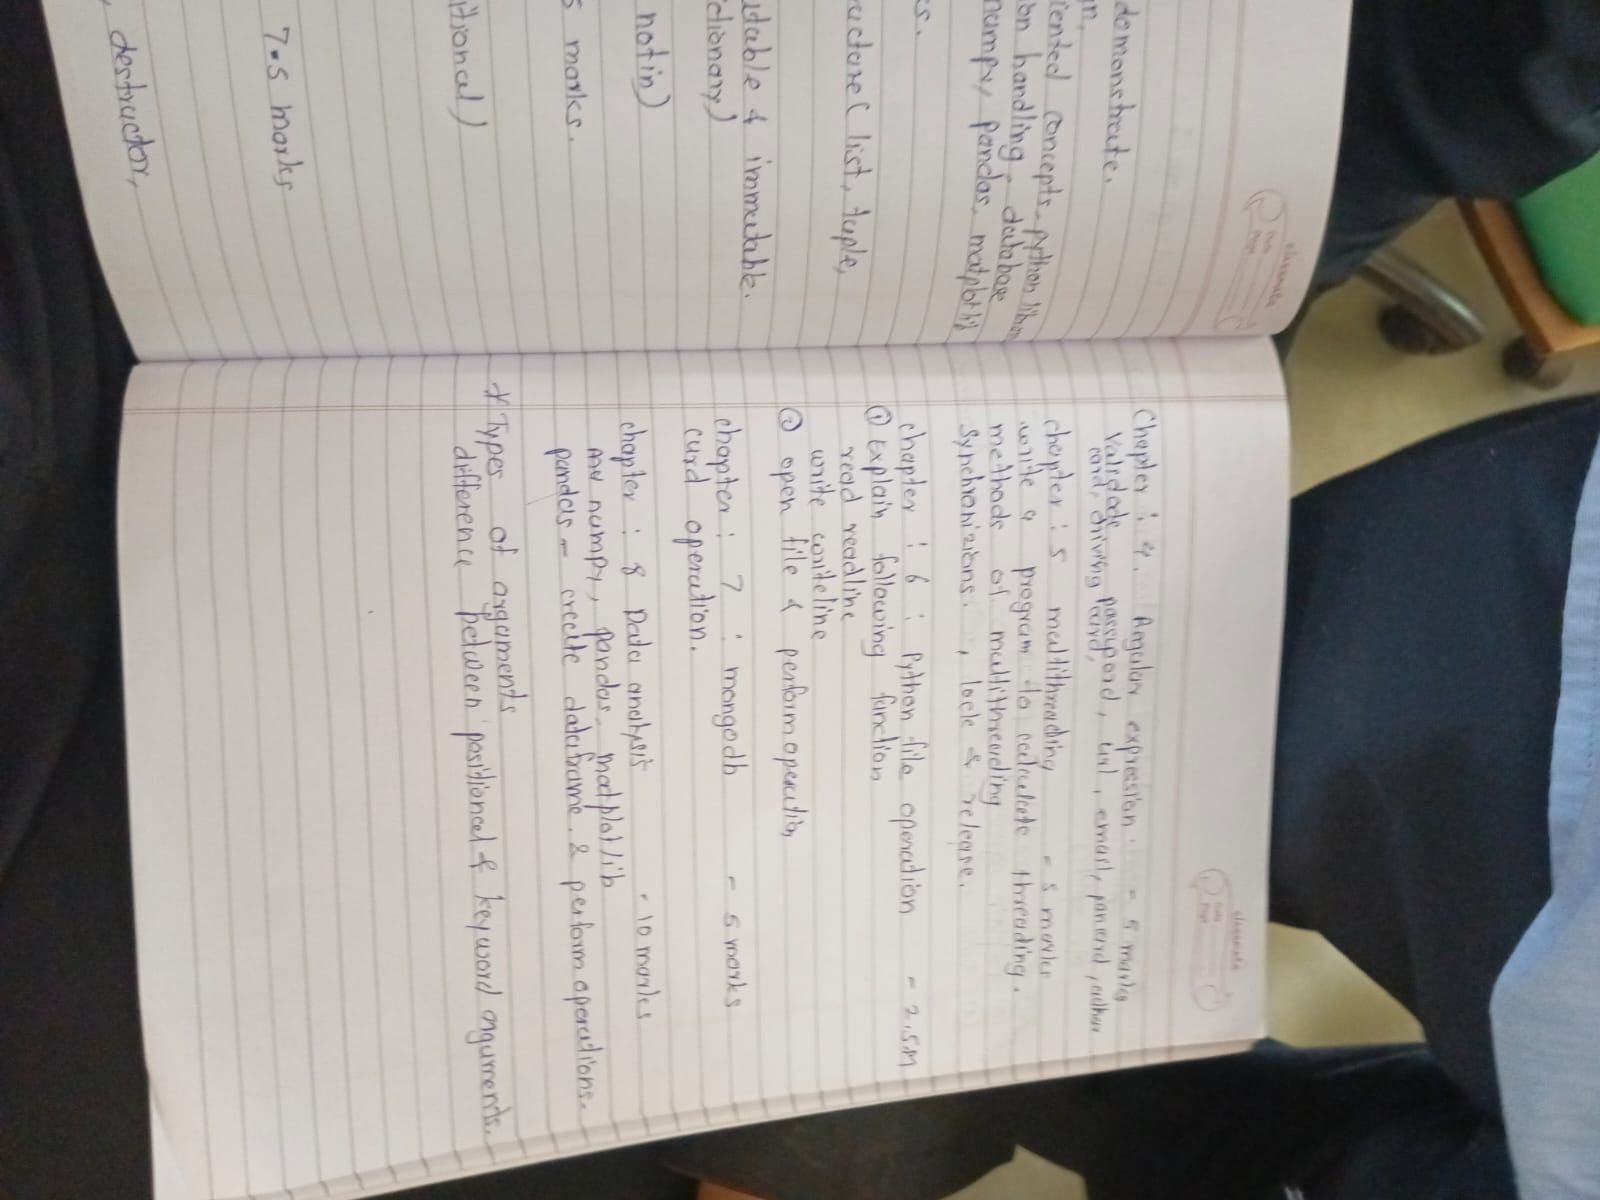 domonstrate.
n.
iented concepts, python libra
ion handling, database
numpy, pandas, matplotlib
es.
ucture ( list, tuple,
utable & immutable.
ctionary)
not in)
5 marks.
itional)
7.5 marks
, destructor,
classmate
Date
Page
classmate
Date
Page
Chapter : 4. Regular expression. - 5 marks
Validate password, url, email, pancard, adhar
card, driving card,
chapter : 5 multithreading - 5 marks
write a program to calculate threading.
methods of multithreading
synchronizions. , lock & release.
chapter : 6 : Python file operation - 2.5M
① Explain following function
read readline
write writeline
② open file & perform operation
chapter : 7 : mongodb - 5 marks
curd operation.
chapter : 8 Data analysis - 10 marks
numpy, pandas, matplotlib
pandas - create dataframe & perform operations.
* Types of arguments
difference between positional & keyword arguments.